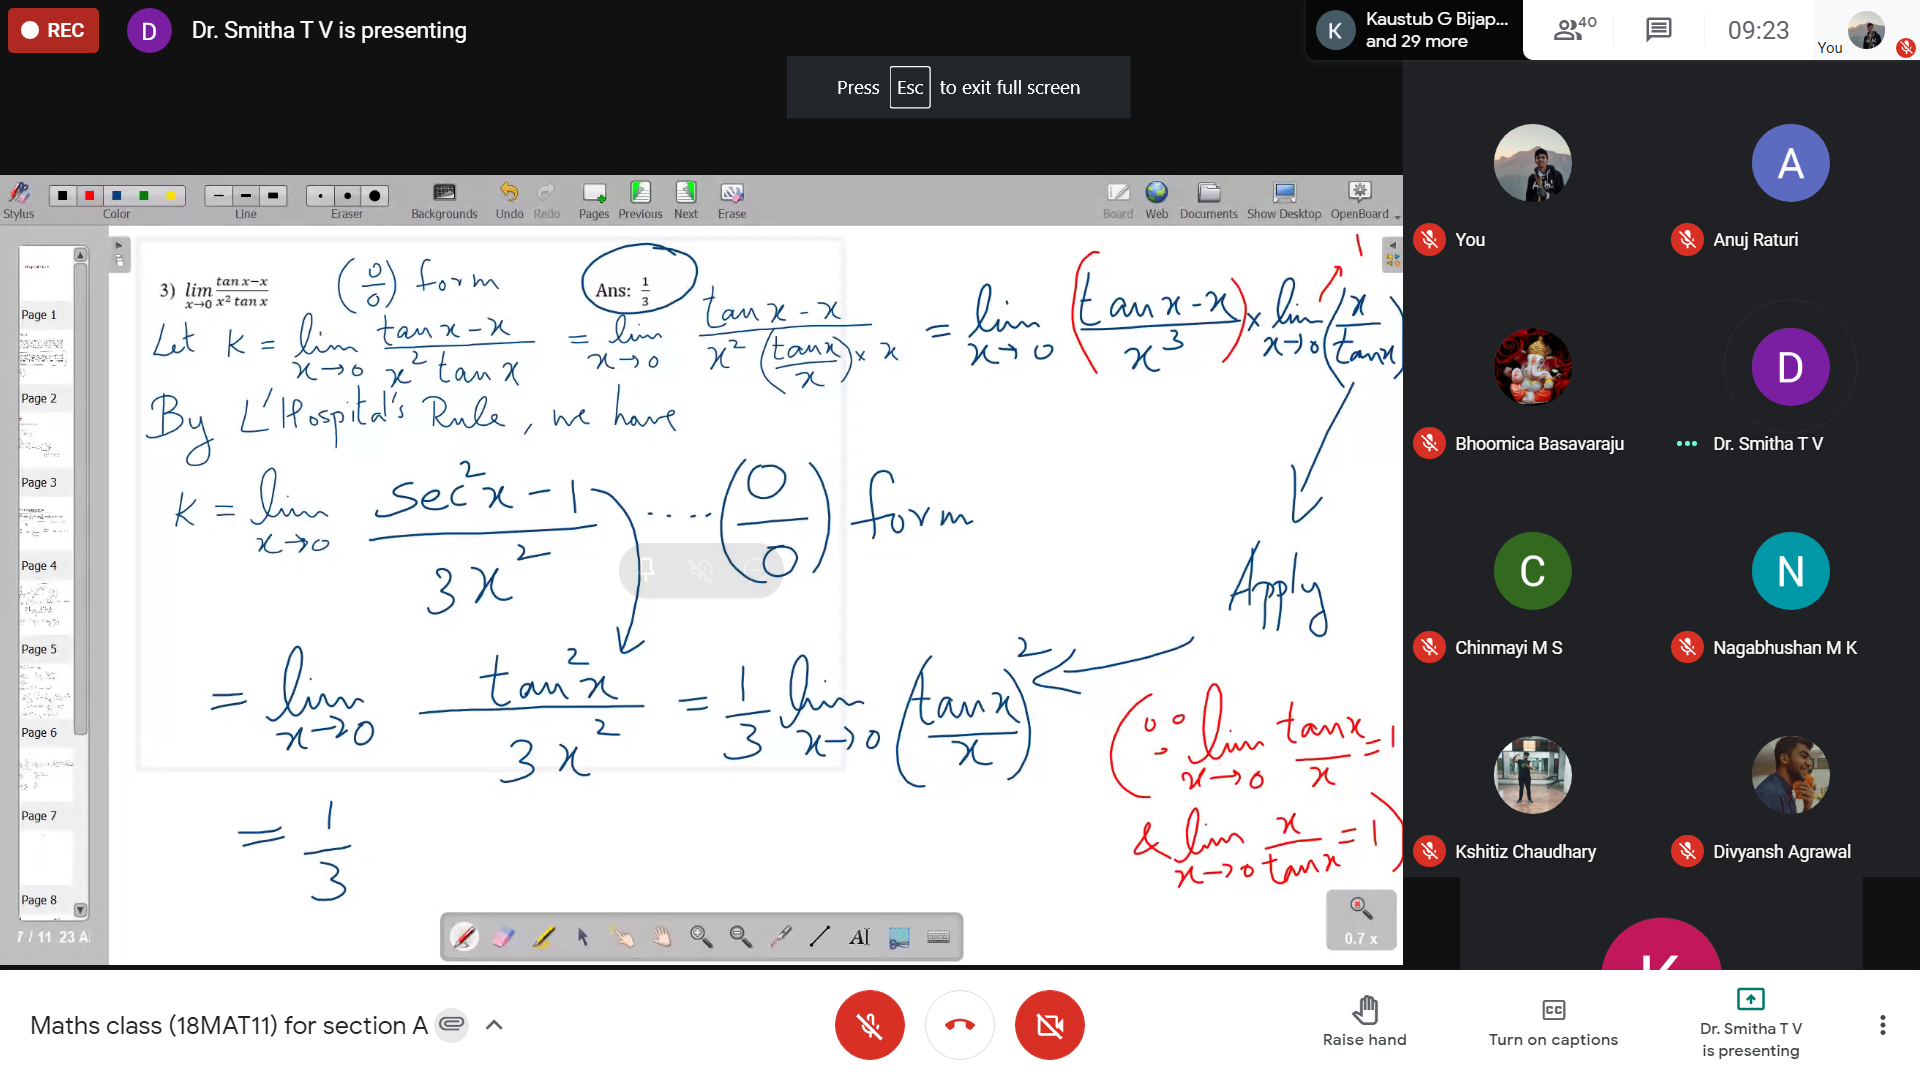 REC
D
Dr. Smitha T V is presenting
K
Kaustub G Bijap...
and 29 more
40
09:23
You
Press Esc to exit full screen
Stylus
Color
Line
Eraser
Backgrounds
Undo
Redo
Pages
Previous
Next
Erase
Board
Web
Documents
Show Desktop
OpenBoard
Page 1
Page 2
Page 3
Page 4
Page 5
Page 6
Page 7
Page 8
7 / 11 23 A
3) lim x→0 (tan x−x)/(x² tan x) (0/0) form Ans: 1/3
Let K = lim x→0 (tan x − x)/(x² tan x) = lim x→0 (tan x − x)/(x² (tan x/x) × x) = lim x→0 ((tan x − x)/x³) × lim x→0 (x/tan x) 1
By L'Hospital's Rule, we have
K = lim x→0 (sec² x − 1)/(3x²) .... (0/0) form
Apply
= lim x→0 (tan² x)/(3x²) = 1/3 lim x→0 (tan x/x)²
(∵ lim x→0 tan x/x = 1
& lim x→0 x/tan x = 1)
= 1/3
0.7 x
You
A
Anuj Raturi
Bhoomica Basavaraju
D
Dr. Smitha T V
C
Chinmayi M S
N
Nagabhushan M K
Kshitiz Chaudhary
Divyansh Agrawal
Maths class (18MAT11) for section A
Raise hand
CC
Turn on captions
Dr. Smitha T V
is presenting